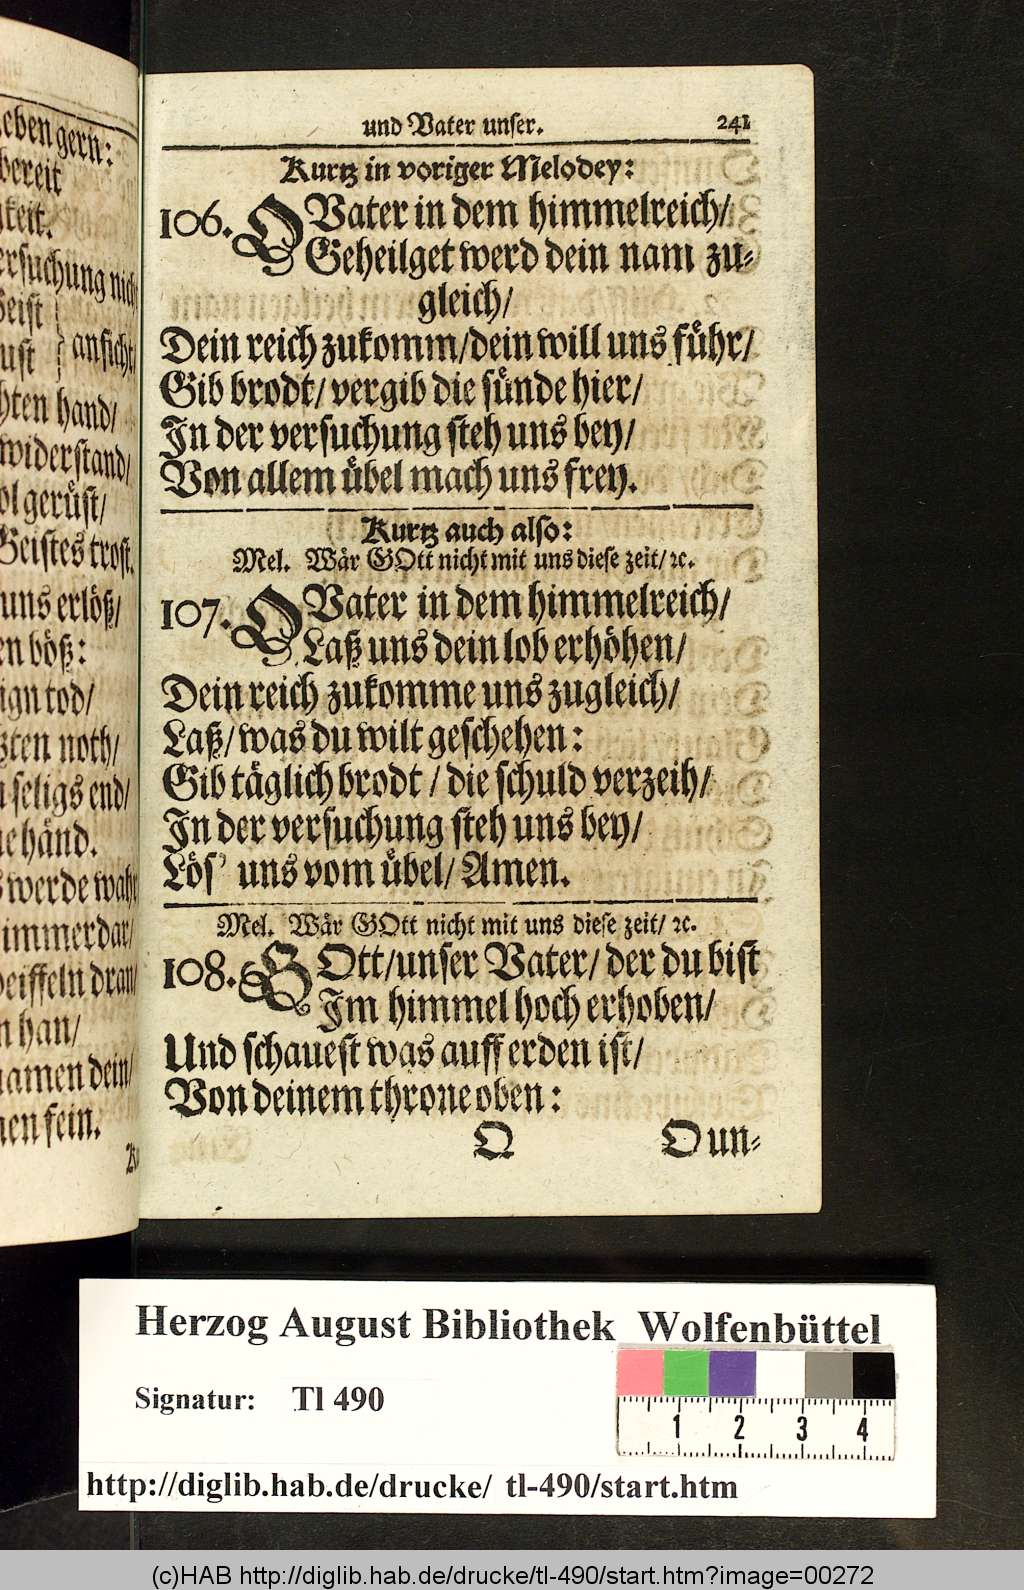 eben gern:
bereit
keit.
ersuchung nich
Geist
ust ansicht,
hten hand/
widerstand/
ol gerüst/
Geistes trost.
uns erlöß/
en böß:
ign tod/
zten noth/
seligs end/
e händ.
werde wahr
immerdar/
eiffeln dran/
n han/
namen dein/
en fein.
und Vater unser. 241
Kurtz in voriger Melodey:
106. O Vater in dem himmelreich/
Geheilget werd dein nam zu-
gleich/
Dein reich zukomm/dein will uns führ/
Gib brodt/ vergib die sünde hier/
In der versuchung steh uns bey/
Von allem übel mach uns frey.
Kurtz auch also:
Mel. Wär GOtt nicht mit uns diese zeit/ ꝛc.
107. O Vater in dem himmelreich/
Laß uns dein lob erhöhen/
Dein reich zukomme uns zugleich/
Laß/ was du wilt geschehen:
Gib täglich brodt / die schuld verzeih/
In der versuchung steh uns bey/
Lös' uns vom übel/ Amen.
Mel. Wär GOtt nicht mit uns diese zeit/ ꝛc.
108. GOtt/unser Vater/ der du bist
Im himmel hoch erhoben/
Und schauest was auff erden ist/
Von deinem throne oben:
Q O un-
Herzog August Bibliothek Wolfenbüttel
Signatur: Tl 490
1 2 3 4
http://diglib.hab.de/drucke/ tl-490/start.htm
(c)HAB http://diglib.hab.de/drucke/tl-490/start.htm?image=00272